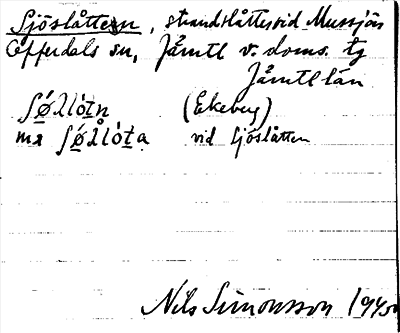 Sjöslåtten, strandslåtter vid Mussjön
Offerdals sn, Jämtl v. doms. tg
Jämtl län
ʃǿλlòtn (Ekeberg)
mæ ʃǿλlòta vid Sjöslåtten
Nils Simonsson 1945